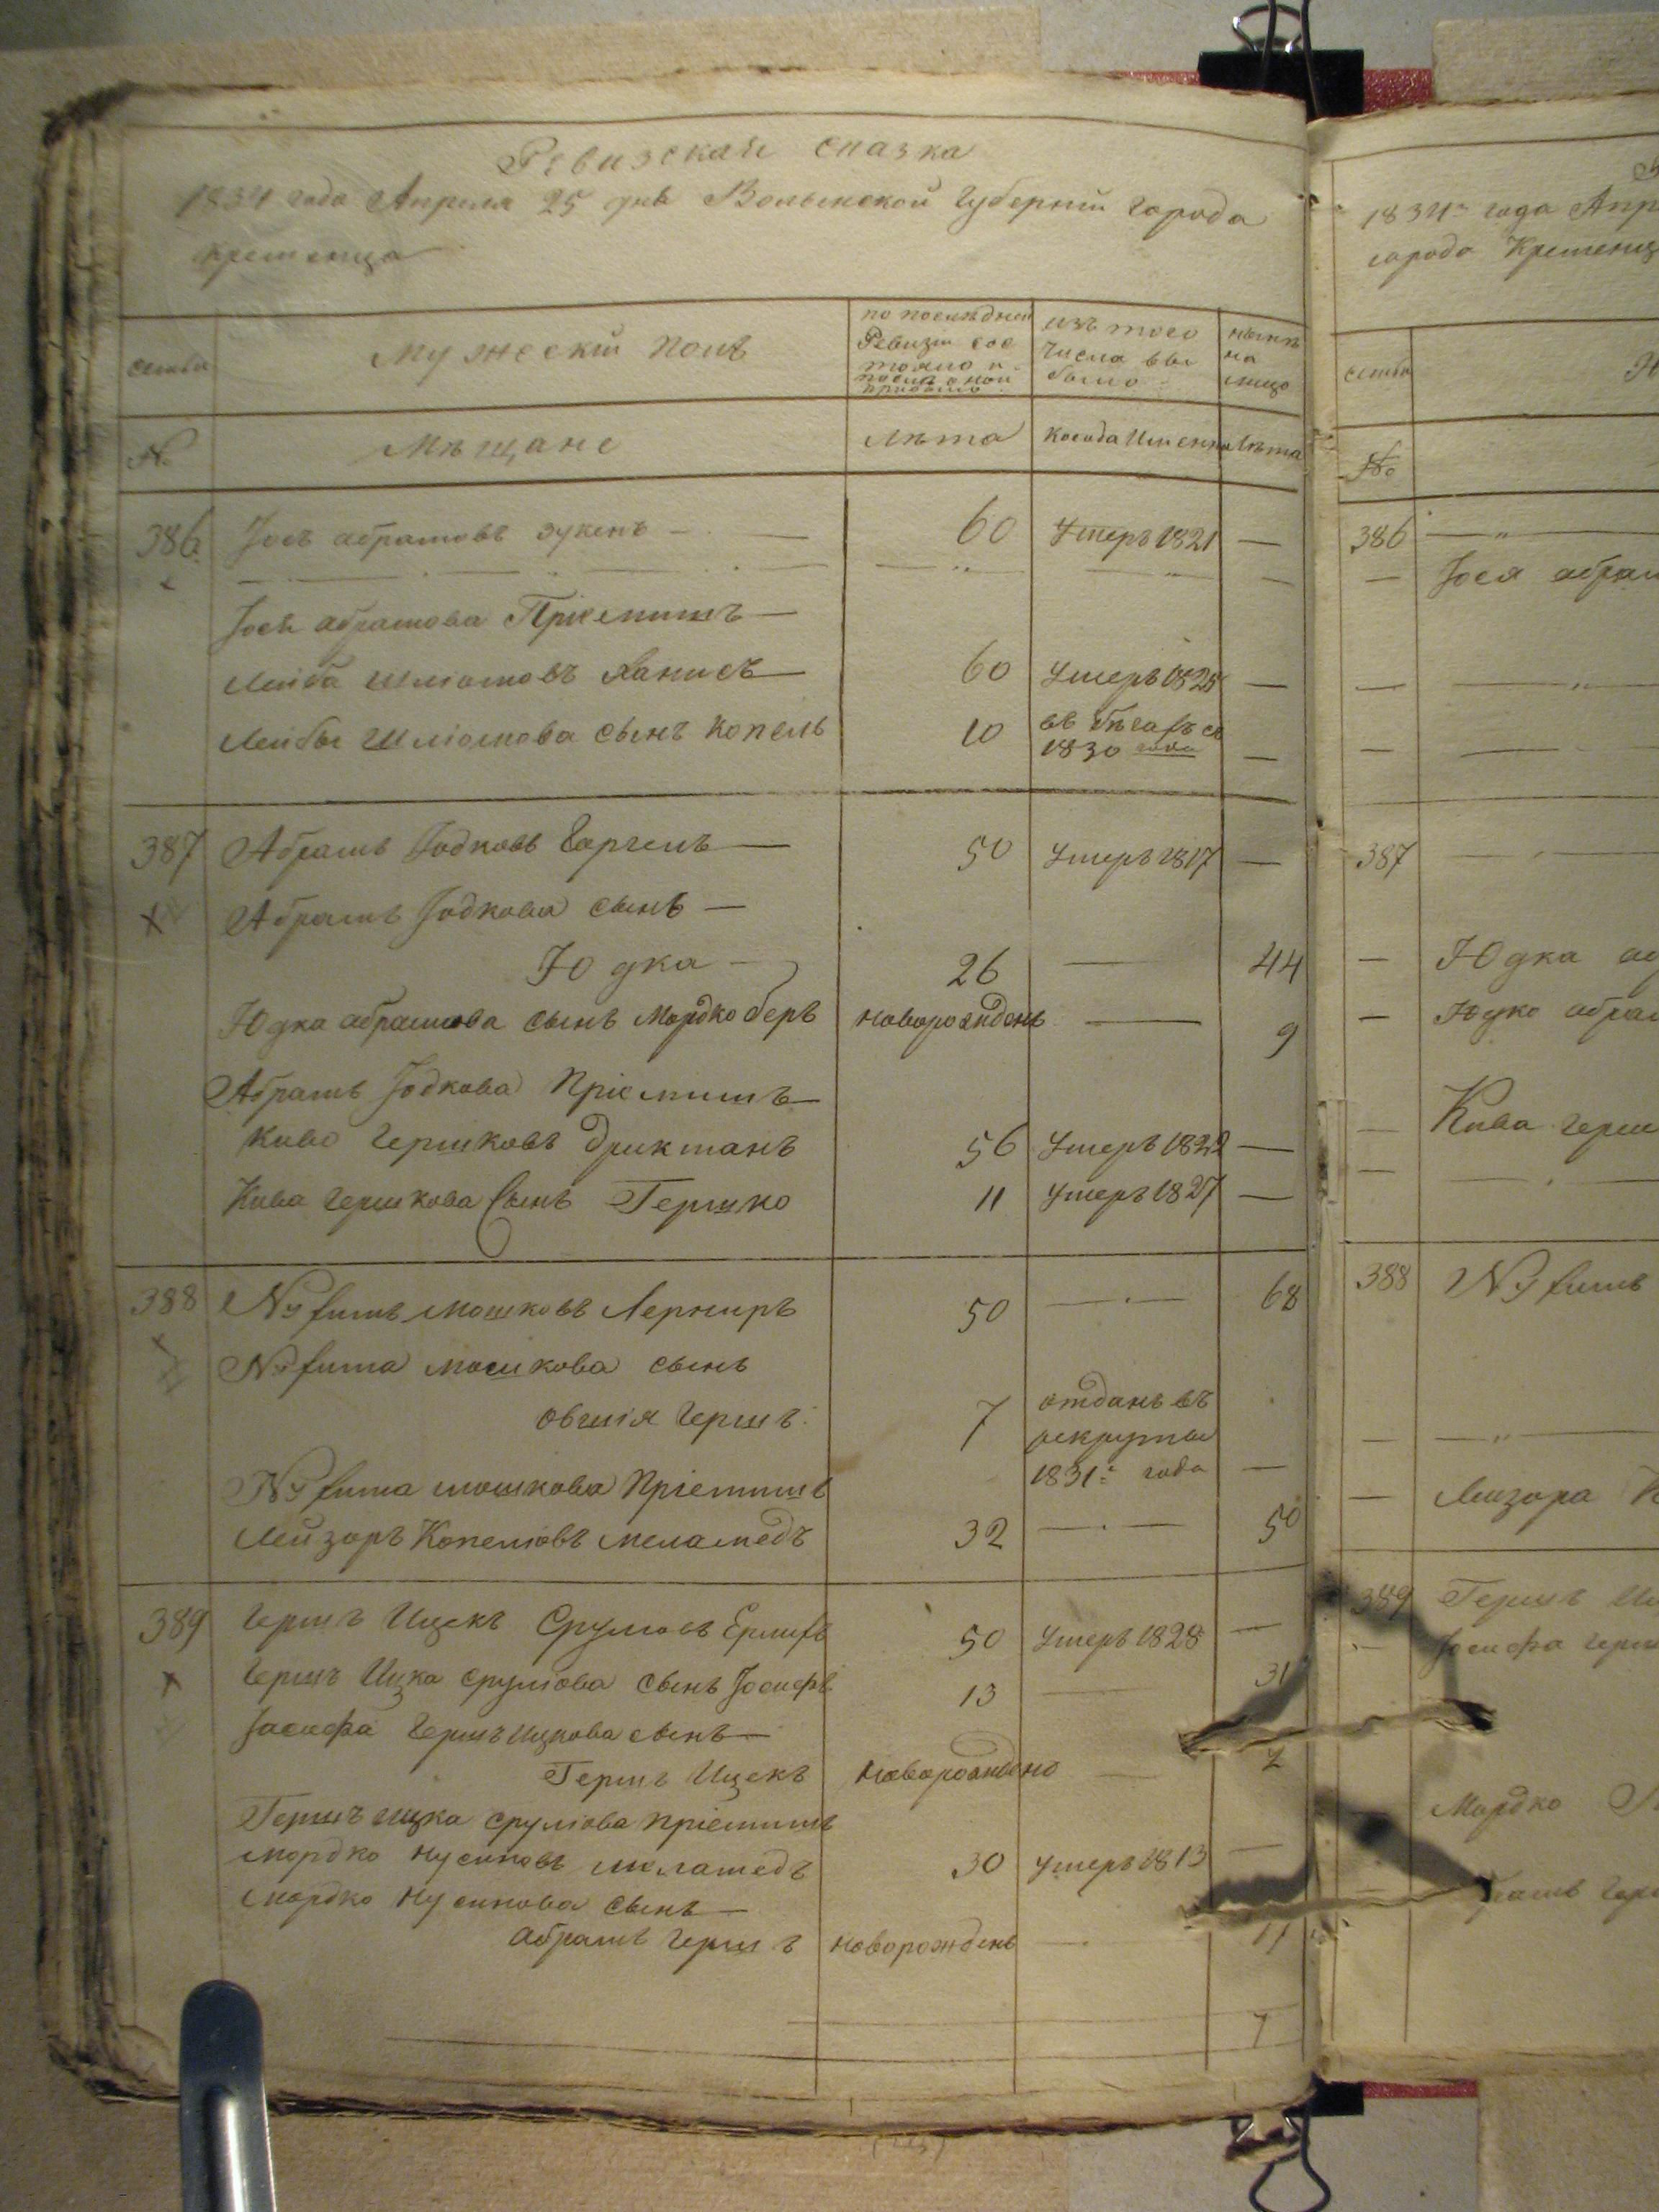 Ревизская сказка
1834 года Апреля 25 дня Волынской Губернiи города
кременца
семьи
Мужескiй полъ
по последней
Ревизiи сос
тояло и
после оной
прибыло
изъ того
числа вы
было
ныне
на
лицо
№
Мѣщане
Лѣта
Когда Именно
Лѣта
386
Iось абрамовъ
60
Умеръ 1821 —
Iося абрамова Прiемишъ —
Лейба Шлiомовъ
60
Умеръ 1825 —
Лейбы Шлiомова сынъ Копель
10
въ бегахъ съ
1830 года —
387
Абрамъ Iодковъ —
50
умеръ 1817 —
Абрамъ Iодкова сынъ —
Юдка —
26
—
44
Юдка абрамова сынъ Мордко беръ
новорожденъ
—
9
Абрамъ Iодкова Прiемишъ —
Кива Гершковъ
56
Умеръ 1822 —
Кива Гершкова Сынъ Гершко
11
умеръ 1827 —
388
Нухимъ Мошковъ Лернеръ
50
— . —
68
Нухима мошкова сынъ
Овшiя Гершъ
7
отданъ въ
рекруты
1831: года —
Нухима мошкова Прiемишъ
Лейзоръ Копелiовъ меламедъ
32
— . —
50
389
Гершъ Ицекъ Срулiовъ Ерлихъ
50
Умеръ 1828 —
Гершъ Ицка срулiова сынъ Iосифъ
13
—
31
Iосифа Гершъ Ицкова сынъ —
Гершъ Ицекъ
Новорожденъ
—
2
Гершъ ицка срулiова прiемишъ
мордко нусиновъ меламедъ
30
умеръ 1813 —
мордко нусинова сынъ —
абрамъ гершъ
новорожденъ
—
11
7
1834: года Апр
города Кременц
семьи
№
386
— Iося абрам
387
— Юдка аб
— Юдко абрам
— Кива герш
388
Нухимъ
— Лейзора К
389
Гершъ Иц
Iосифа герш
Мордко